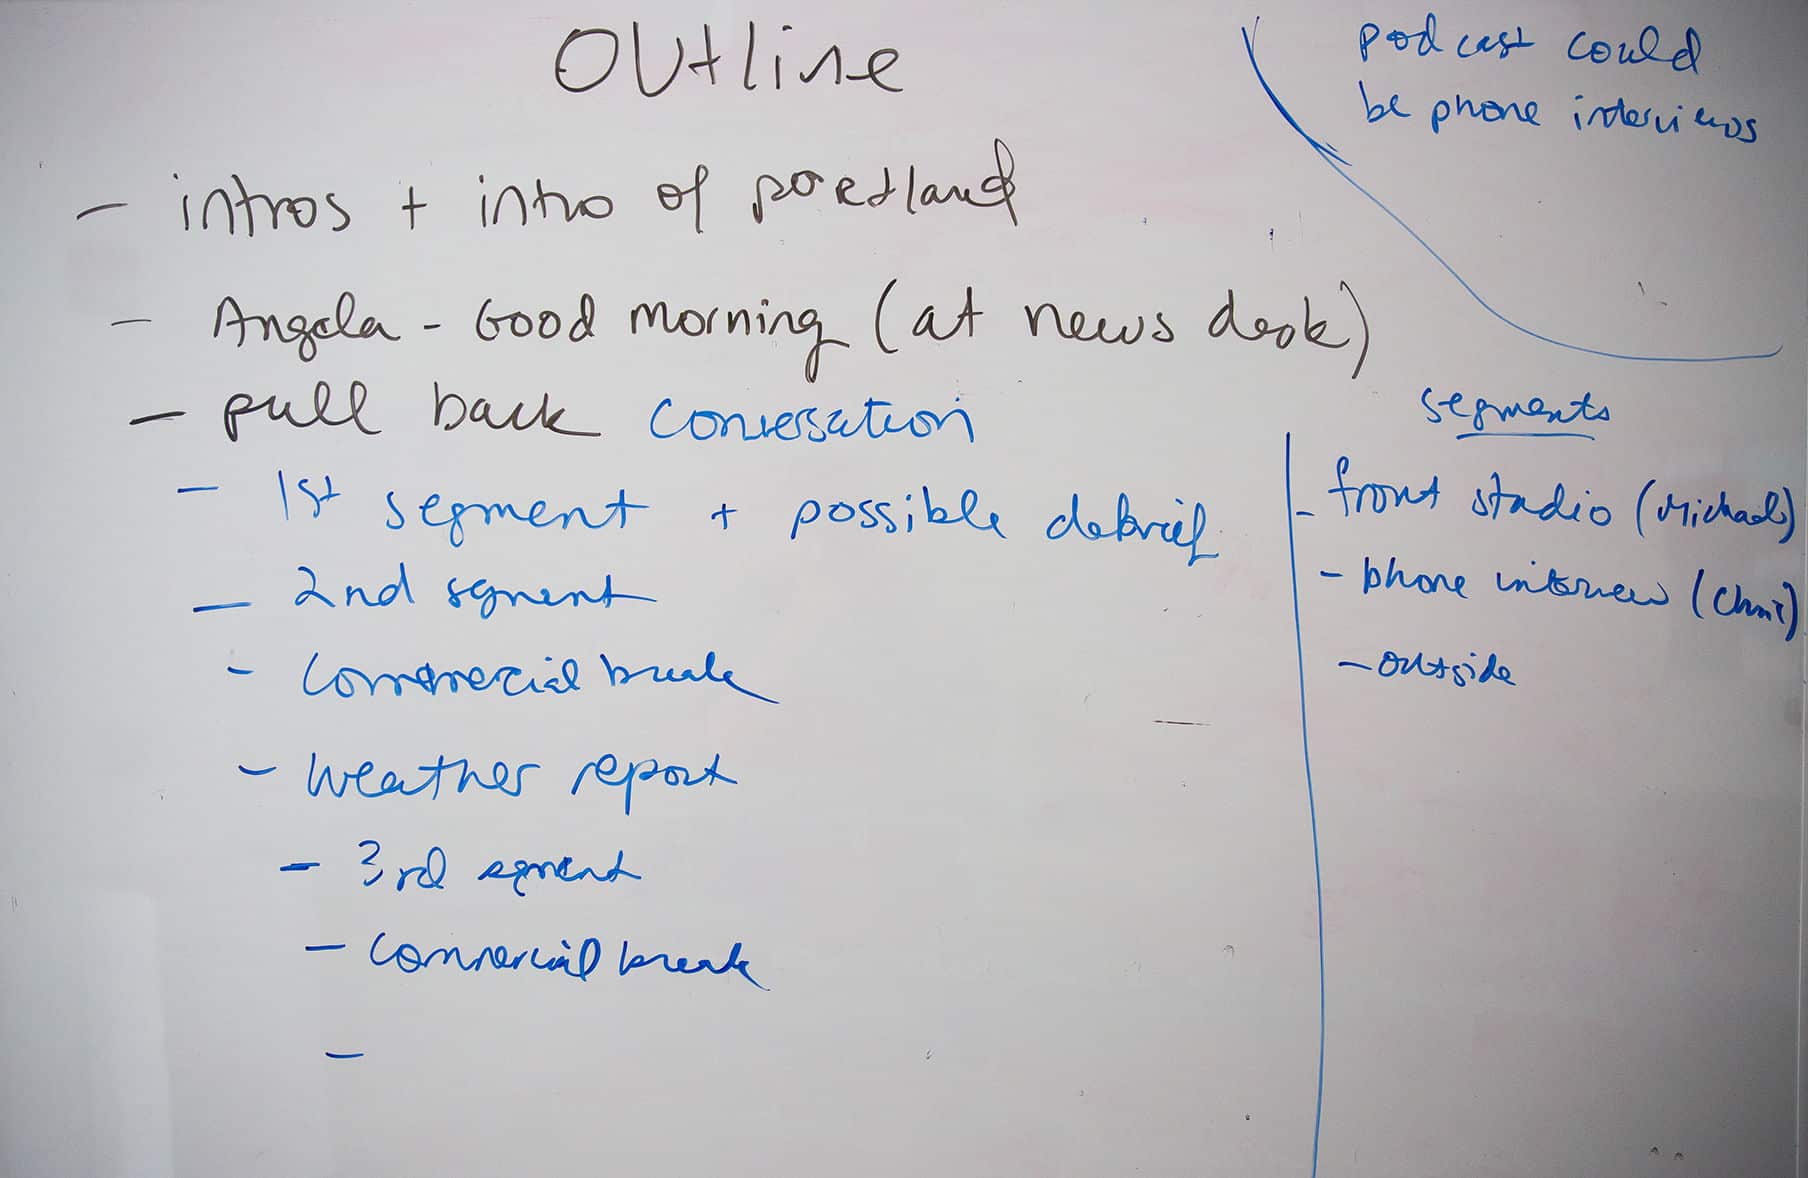 OUtline
- intros + intro of portland
- Angela - Good morning (at news desk)
- pull back conversation
- 1st segment + possible debrief
- 2nd segment
- commercial break
- weather report
- 3rd segment
- commercial break
-
podcast could
be phone interviews
segments
- front studio (Michael)
- phone interview (
- outside